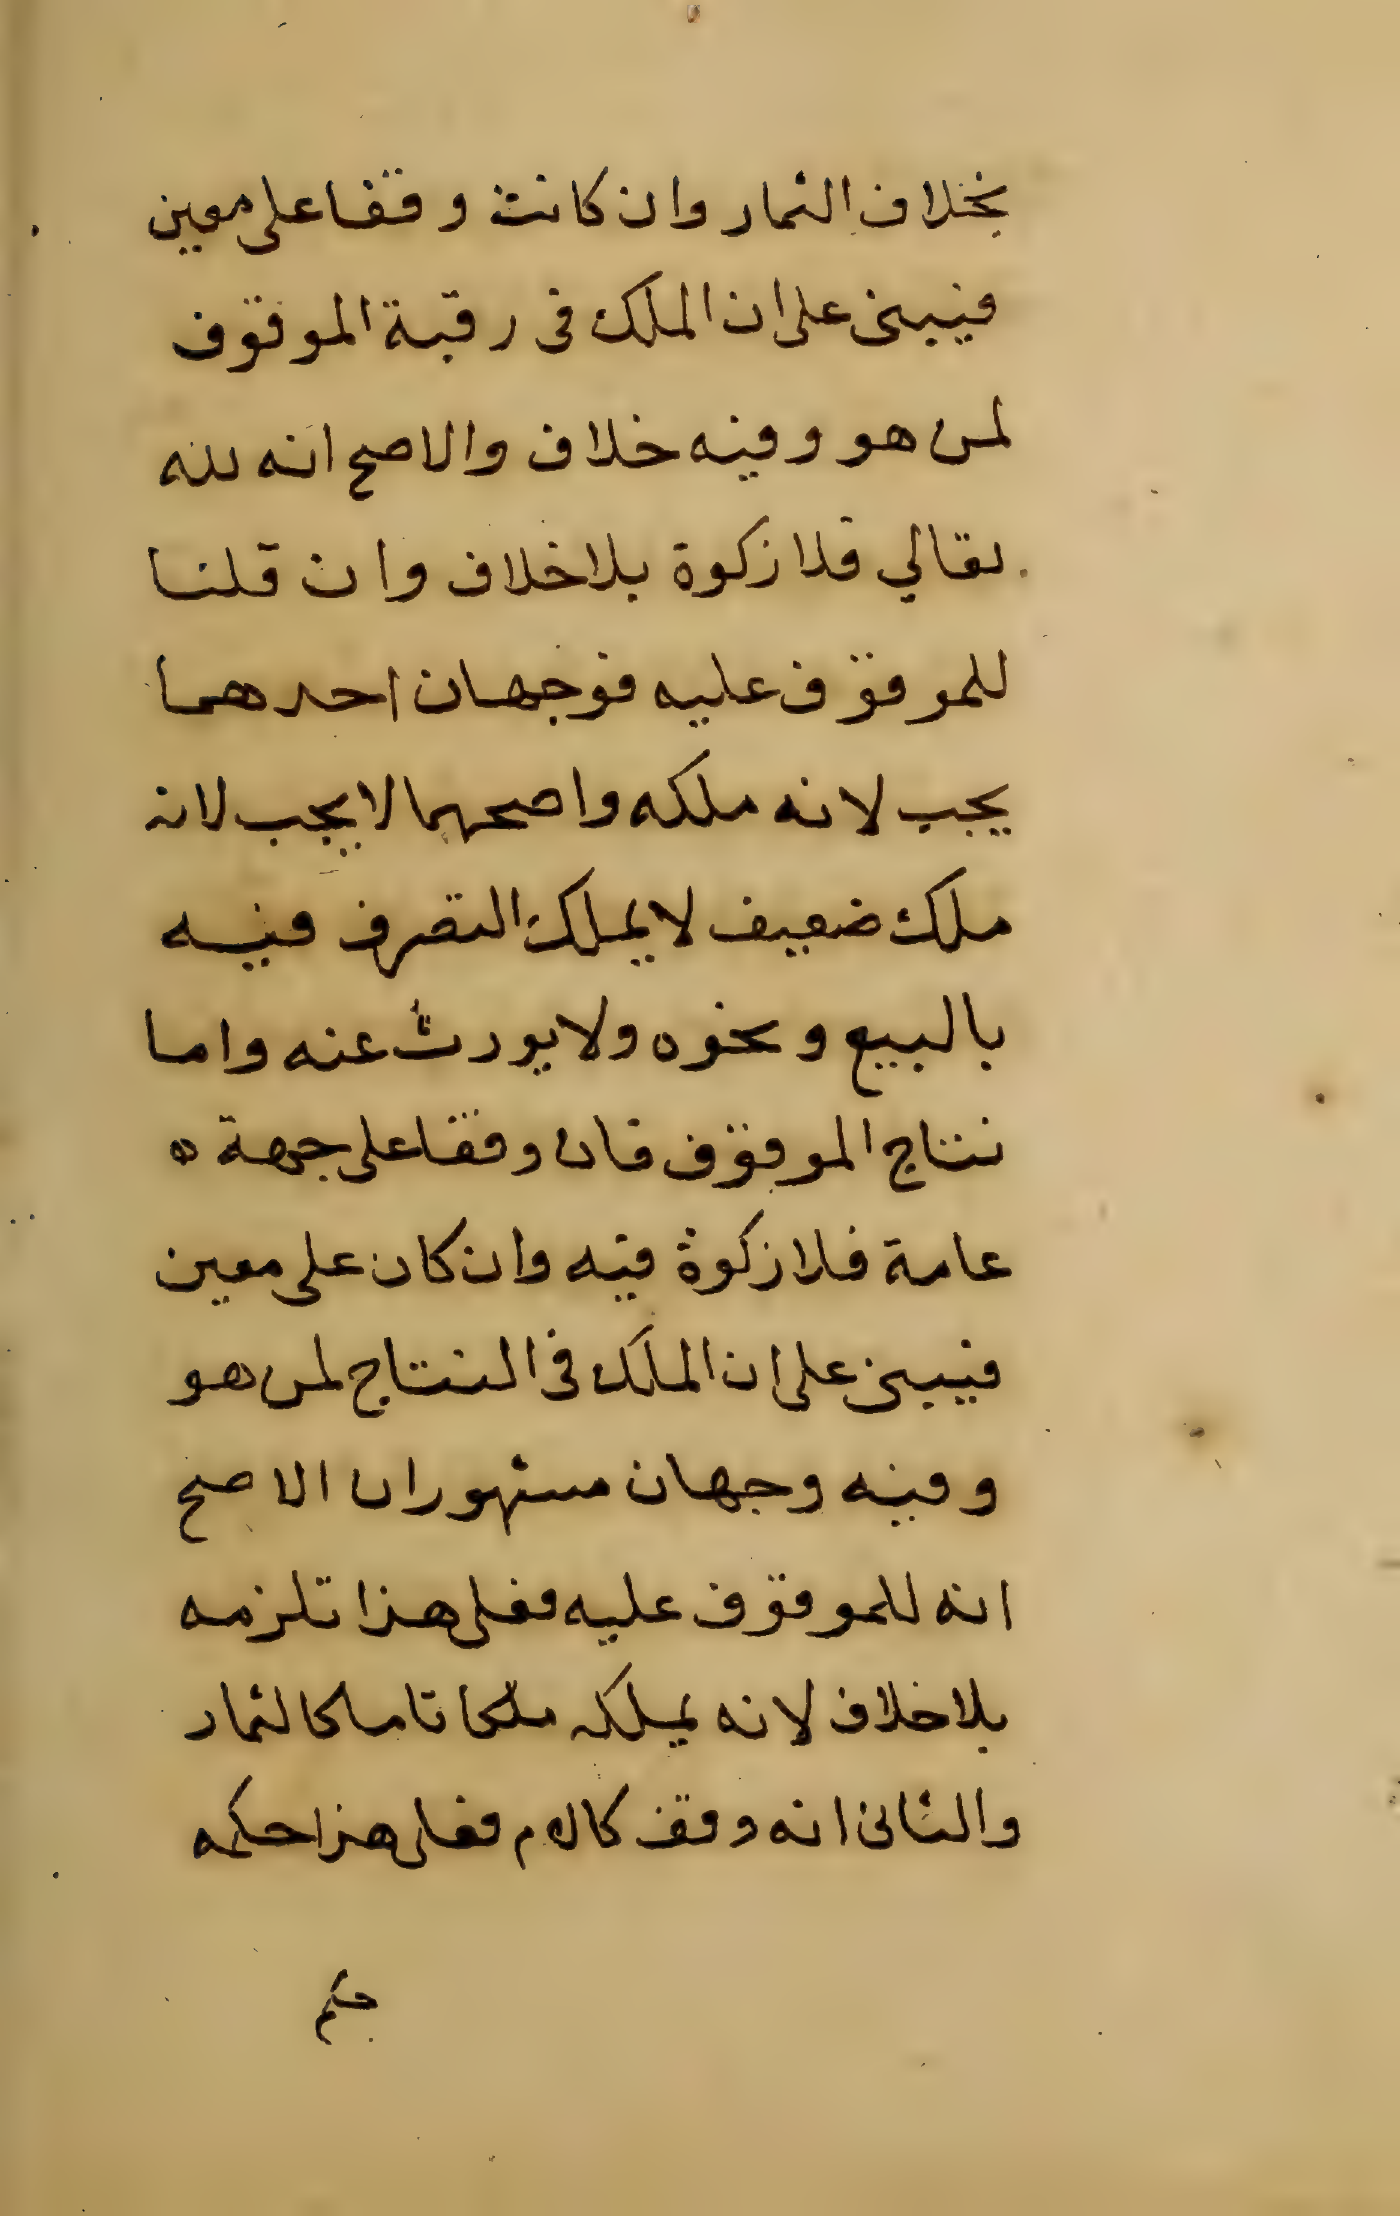 بخلاف الثمار وان كانت وقفا على معين
فيبنى على ان الملك فى رقبة الموقوف
لمن هو وفيه خلاف والاصح انه لله
تعالي فلا زكوة بلا خلاف وان قلنا
للموقوف عليه فوجهان احدهما
يجب لانه ملكه واصحهما لا يجب لانه
ملك ضعيف لا يملك التصرف فيه
بالبيع ونحوه ولا يورث عنه واما
نتاج الموقوف فان وقفا على جهة ه
عامة فلا زكوة فيه وان كان على معين
فيبنى على ان الملك فى النتاج لمن هو
وفيه وجهان مشهوران الاصح
انه للموقوف عليه فعلى هذا تلزمه
بلا خلاف لانه يملكه ملكا تاما كالثمار
والثانى انه وقف كالام فعلى هذا حكمه
حكم